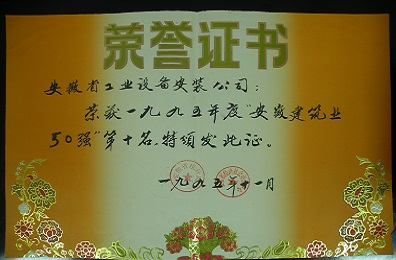 荣誉证书
安徽省工业设备安装公司：
荣获一九九五年度“安徽建筑业
50强”第十名，特颁发此证。
一九九五年十一月